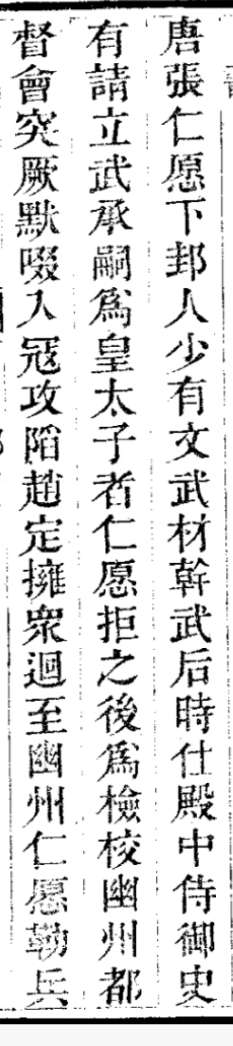 唐張仁愿下邽人少有文武材幹武后時仕殿中侍御史
有請立武承嗣爲皇太子者仁愿拒之後爲檢校幽州都
督會突厥默啜入冦攻陷趙定擁衆迴至幽州仁愿勒兵